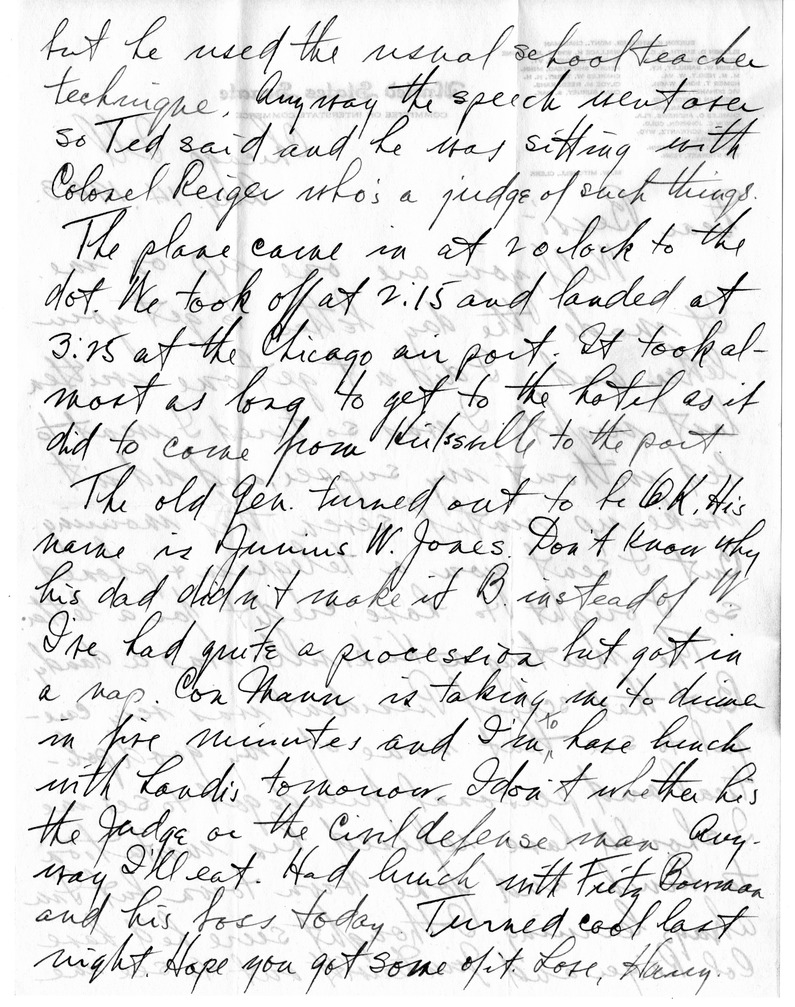 but he used the usual school teacher
technique. Anyway the speech went over
so Ted said and he was sitting with
Colonel Reiger who's a judge of such things.
The plane came in at 2 oclock to the
dot. We took off at 2:15 and landed at
3:25 at the Chicago air port. It took al-
most as long to get to the hotel as it
did to come from to the port.
The old Gen. turned out to be O.K. His
name is Junius W. Jones. Don't know why
his dad didn't make it B. instead of W
I've had quite a procession but got in
a nap. Con Mann is taking me to dinner
in five minutes and I'm to have lunch
with Landis tomorrow. I don't whether his
the Judge or the Civil defense man Any-
way I'll eat. Had lunch with Fritz Bowman
and his boss today. Turned cool last
night. Hope you got some of it. Love, Harry.